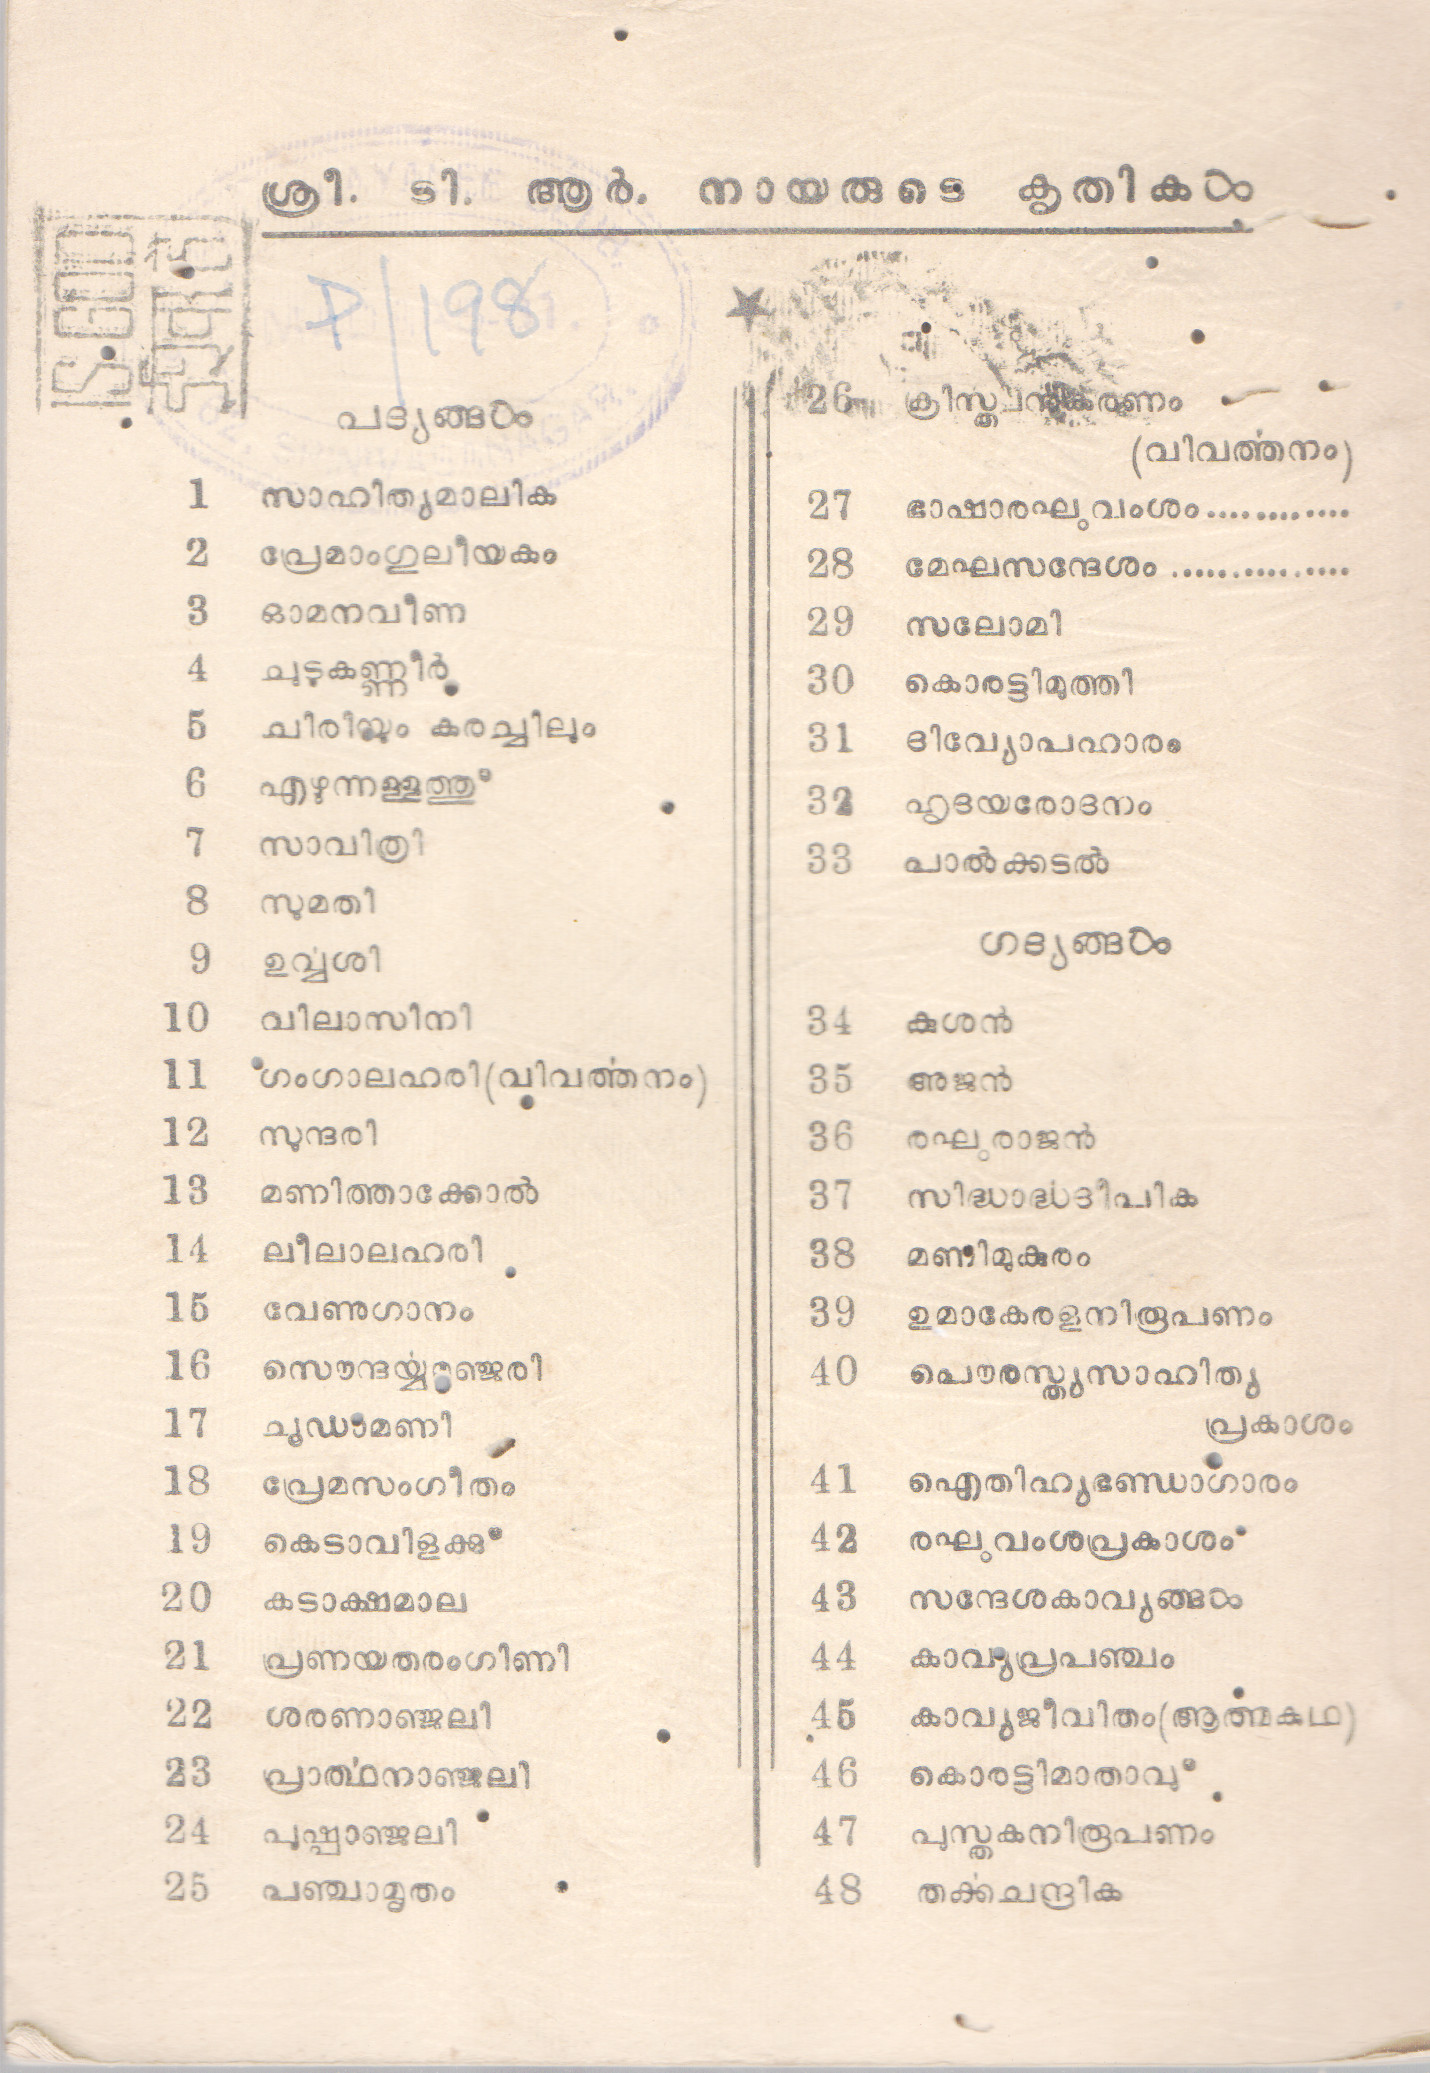 ശ്രീ. ടി. ആർ. നായരുടെ കൃതികൾ
P/198
പദ്യങ്ങൾ
1 സാഹിത്യമാലിക
2 പ്രേമാംഗുലീയകം
3 ഓമനവീണ
4 ചുടുകണ്ണീർ
5 ചിരിയും കരച്ചിലും
6 എഴുന്നള്ളത്തു്
7 സാവിത്രി
8 സുമതി
9 ഉൎവ്വശി
10 വിലാസിനി
11 ഗംഗാലഹരി(വിവൎത്തനം)
12 സുന്ദരി
13 മണിത്താക്കോൽ
14 ലീലാലഹരി
15 വേണുഗാനം
16 സൌന്ദൎയ്യമഞ്ജരി
17 ചൂഡാമണി
18 പ്രേമസംഗീതം
19 കെടാവിളക്കു്
20 കടാക്ഷമാല
21 പ്രണയതരംഗിണി
22 ശരണാഞ്ജലി
23 പ്രാൎത്ഥനാഞ്ജലി
24 പുഷ്പാഞ്ജലി
25 പഞ്ചാമൃതം
26 ക്രിസ്ത്വനുകരണം
(വിവൎത്തനം)
27 ഭാഷാരഘുവംശം............
28 മേഘസന്ദേശം ...............
29 സലോമി
30 കൊരട്ടിമുത്തി
31 ദിവ്യോപഹാരം
32 ഹൃദയരോദനം
33 പാൽക്കടൽ
ഗദ്യങ്ങൾ
34 കുശൻ
35 അജൻ
36 രഘുരാജൻ
37 സിദ്ധാൎദ്ധദീപിക
38 മണിമുകുരം
39 ഉമാകേരളനിരൂപണം
40 പൌരസ്ത്യസാഹിത്യ
പ്രകാശം
41 ഐതിഹ്യഭണ്ഡാഗാരം
42 രഘുവംശപ്രകാശം
43 സന്ദേശകാവ്യങ്ങൾ
44 കാവ്യപ്രപഞ്ചം
45 കാവ്യജീവിതം(ആത്മകഥ)
46 കൊരട്ടിമാതാവു്
47 പുസ്തകനിരൂപണം
48 തൎക്കചന്ദ്രിക